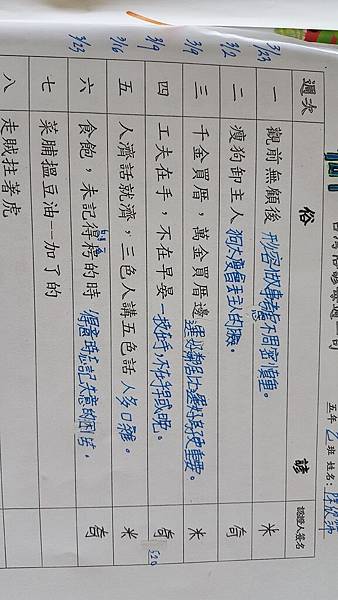 台灣俗諺每週一句
五年乙班 姓名:
週次 俗諺 認證人簽名
2/23 一 觀前無顧後 形容做事考慮不周密慎重。 米
3/2 二 瘦狗卸主人 狗太瘦會丟主人的臉。 奇
3/9 三 千金買厝，萬金買厝邊 選好鄰居比選好房子更重要。 米
3/9 四 工夫在手，不在早晏 一技在身，不在乎早或晚。 奇
3/16 五 人濟話就濟，三色人講五色話 人多口雜。 米
3/23 六 食飽，未記得枵的時 得意時忘記失意的困苦。 奇
七 菜脯搵豆油－加了的
八 走賊拄著虎